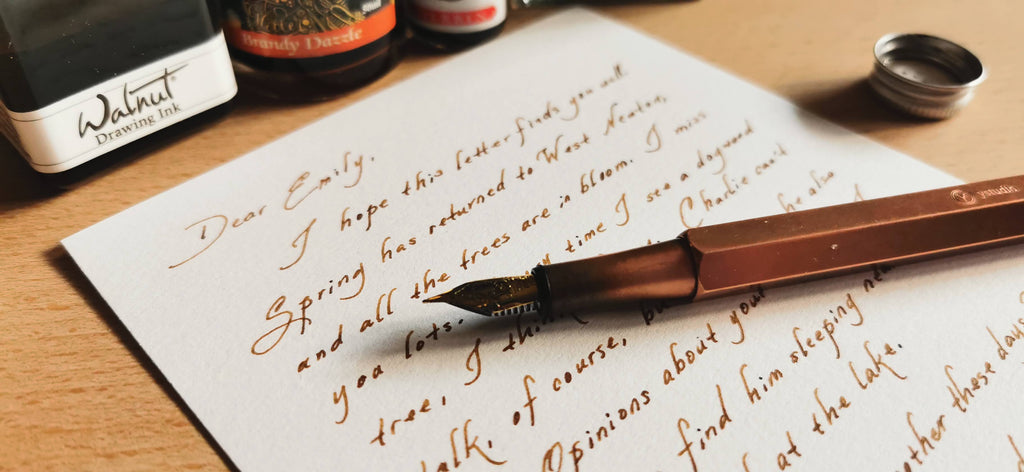 Walnut
Drawing Ink
Brandy Dazzle
ystudio
Dear Emily,
I hope this letter finds you well.
Spring has returned to West Newton,
and all the trees are in bloom. I miss
you lots. time I see a dogwood
tree, I Charlie can't
talk, of course, he also
opinions about your
find him sleeping
at the lake.
these days